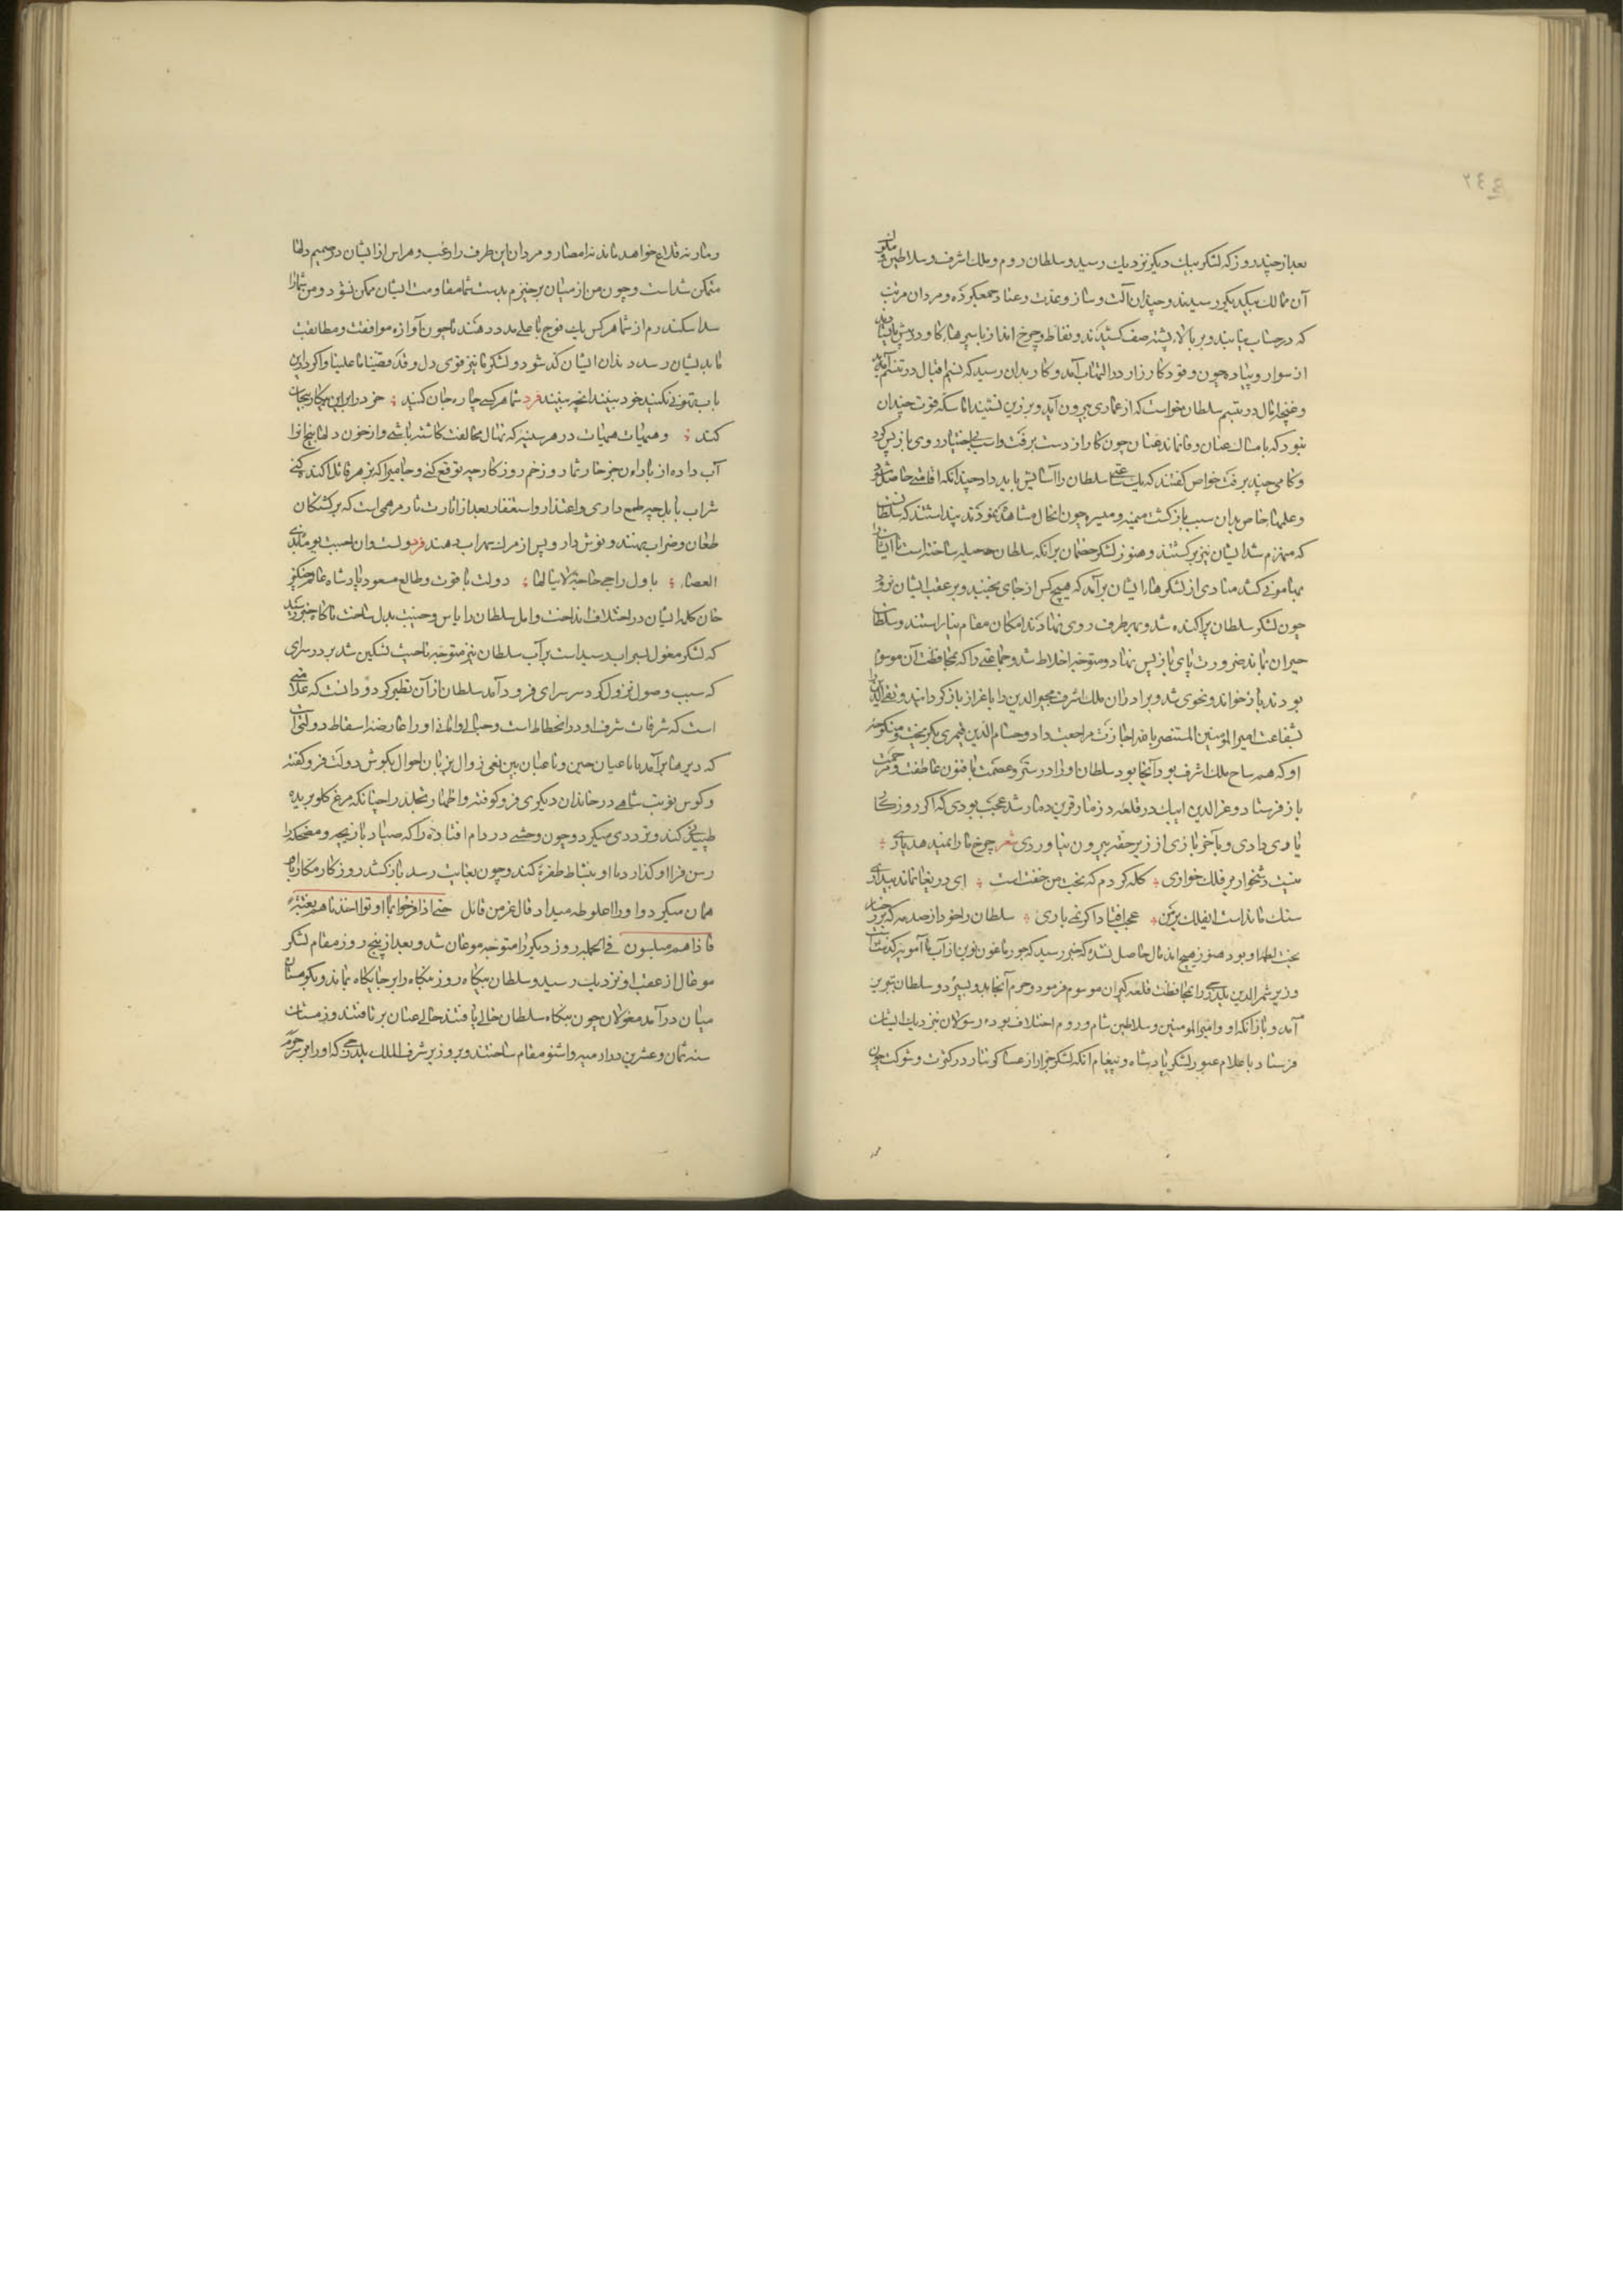 ٢٤٣
بعد از چند روز که لشکر بیک دیگر نزدیک رسید و سلطان روم و ملک اشرف و سلاطین و ملوک
آن ممالک بیکدیگر رسیدند و چندان آلت و ساز و عدت و عتاد جمع کرده و مردان مرتب
که در حساب نیاید و بر بالاء پشته صف کشیدند و نفاط و چرخ انداز با سپرهاء کاو در پیش بایستادند
از سوار و پیاده چون وقود کارزار در التهاب آمد و کار بدان رسید که نسیم اقبال در تنسم آید
و غنچه آمال در تبسم سلطان خواست که از عماری بیرون آید و بر زین نشیند اما سکنه قوت چندان
نبود که بامساک عنان وفا نماند عنان چون کار از دست برفت و اسب بی اختیار روی باز پس کرد
و کامی چند برفت خواص کفتند که یک ساعتی سلطان را آسایش باید داد چندانکه افاقتی حاصل شود
و علمهاء خاص بدان سبب باز کشت میمنه و میسره چون آن حال مشاهده نمودند پنداشتند که سلطان
که منهزم شد ایشان نیز برکشتند و هنوز لشکر خصمان بر آنکه سلطان حیله ساختست تا ایشانرا
بهامون کشد منادی از لشکرهاء ایشان بر آمد که هیچ کس از جای نجنبد و بر عقب ایشان نرود
چون لشکر سلطان پراکنده شد و بهر طرف روی نهادند امکان مقام نیاراستند و سلطان
حیران بماند ضرورت پای باز پس نهاد و متوجه اخلاط شد و جماعتی را که بمحافظت آن موسوم
بودند باز خواند و بخوی شد و برادران ملک اشرف مجیر الدین را باعزاز باز کردانید و تقی الدین را
بشفاعت امیر المومنین المستنصر بالله اجازت مراجعت داد و حسام الدین قیمری بکریخت و منکوحه
او که هم ساح ملک اشرف بود آنجا بود سلطان او را در ستر و عصمت با فنون عاطفت و مرحمت
باز فرستاد و عز الدین ایبک در قلعه دزمار قرین دمار شد عجب بودی که اکر روزکار
یاری دادی و بآخر بازی از زیر حقه بیرون نیاوردی شعر چرخ تا را نمید هد یاری
نیست دشخوار مر فلک خواری کله کردم که بخت من خفتست ای دریغا نماند بیداری
سنک ماندست ای فلک بر من عجب افتاد اکر نمی باری سلطان را خود از صدمه که بر رخسار
بخت لطمه او بود هنوز هیچ اندمال حاصل نشده که خبر رسید که جورماغون نوین از آب آمویه کذشت
وزیر شمس الدین یلدرجی را بمحافظت قلعه کیران موسوم فرمود و حرم آنجا بدو سپرد و سلطان بتبریز
آمد و باز آنکه او و امیر المومنین و سلاطین شام و روم اختلاف بوده رسولان بنزدیک ایشان
فرستاد باعلام عبور لشکر پادشاه و پیغام آنکه لشکر جرار از عساکر تتار در کثرت و شوکت چون
و مار نه قلاع خواهد ماند نه امصار و مردان این طرف را رعب و هراس از ایشان در صمیم دلها
متمکن شدست و چون من از میان برخیزم بدست شما مقاومت ایشان ممکن نشود و من شما را
سد اسکندرم از شما هر کس یک فوج با علمی مدد دهند تا چون آوازه موافقت و مطابقت
ما بدیشان رسد دندان ایشان کند شود و لشکر ما نیز قوی دل و قد قضینا ما علینا و اکر در این
باب تهاونی نکنید خود ببینند انچه ببینند فرد شما هر کسی چاره جان کنید خرد را برین بیکار بیجان
کنید و هیهات هیهات در هر سینه که نهال مخالفت کاشته باشی و از خون دلها بیخ او را
آب داده از بار آن جز خار ثمار و زخم روزکار چه توقع کنی و جامی را که بزهر قاتل آکنده کنی
شراب بابل چه طمع داری و اعتذار و استغفار بعد از اثارت ثار مرهمی است که بر کشتکان
طعان و ضراب نهند و نوش دارو پس از مرک سهراب دهند فرد ولست وان احببت
العصا باول راجی حاجة لا ینالها دولت با قوت و طالع مسعود پادشاه عالم جنکز
خان کلمه ایشان در اختلاف انداخت و امل سلطان را بیاس و خیبت بدل ساخت ناکاه خبر رسید
که لشکر مغول بسراب رسیدست بر آب سلطان نیز متوجه ناحیت لشکین شد بر در سرای
که سبب وصول نزول کرد سر سرای فرود آمد سلطان از آن تطیر کرد و دانست که علامتی
است که شرفات شرف او در انحطاط است و حیالی و امانی او را عارضه اسقاط دولتخوان
که دیرها بر آمد با ما عیان حین و ناعیان بین نعی زوال بزبان احوال بکوش دولت فرو کفته
و کوس نوبت شاهی در خاندان دیکری فرو کوفته و اظهار تجلد را چنانکه مرغ کلو بریده
طپیدنی کند و ترددی میکرد و چون وحشی در دام افتاده را که صیاد بازیچه و مضحکه را
رسن فرا او کذارد تا او بنشاط طفره کند و چون بغایت رسد باز کشد روزکار مکار با او
همان میکرد و او را اغلوطه میداد قال عز من قائل حتی اذا فرحوا بما اوتوا اخذناهم بغتة
فاذا هم مبلسون فی الجمله روز دیکر را متوجه موغان شد و بعد از پنج روز مقام لشکر
موغال از عقب او نزدیک رسید و سلطان بیکاه روز بنکاه را بر جایکاه بماند و بکوهستان
میان در آمد مغولان چون بنکاه سلطان خالی یافتند حالی عنان بر تافتند و زمستان
سنه ثمان و عشرین در ارمیه و اشنو مقام ساختند و بر وزیر شرف الملک یلدرجی که او را بر سر حرم